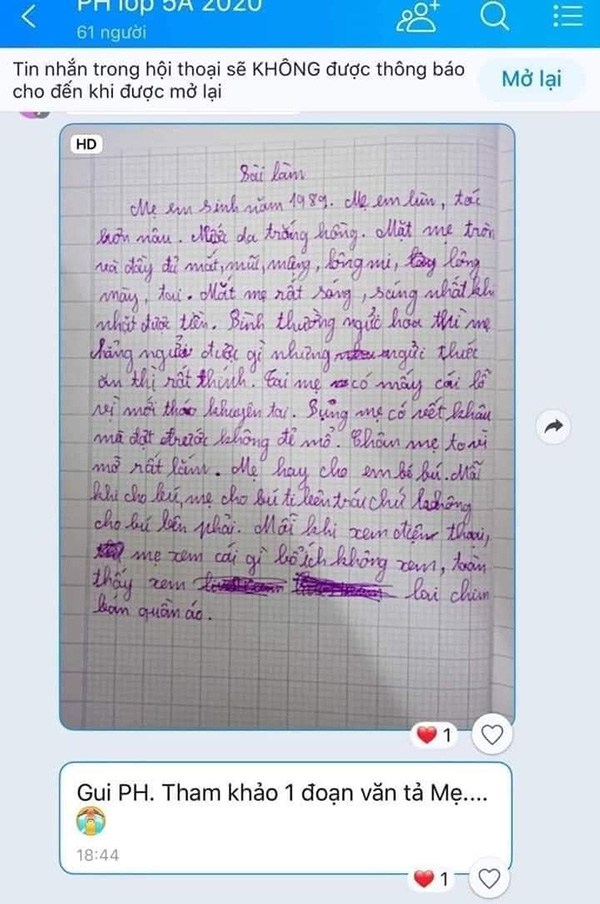 PH lớp 5A 2020
61 người
Tin nhắn trong hội thoại sẽ KHÔNG được thông báo
cho đến khi được mở lại
Mở lại
HD
Bài làm
Mẹ em sinh năm 1989. Mẹ em lùn, tóc
màu nâu. da trắng hồng. Mặt mẹ tròn
và đầy đủ mắt, mũi, mồm, lông mi, lông
mày, tai. Mắt mẹ rất sáng, sáng nhất khi
nhặt được tiền. Bình thường ngửi hoa thì mẹ
chẳng ngửi được gì nhưng ngửi thức
ăn thì rất thính. Tai mẹ có mấy cái lỗ
vì mới tháo khuyên tai. Bụng mẹ có vết khâu
mà đợt trước không đẻ mổ. Chân mẹ to vì
mỡ rất lắm. Mẹ hay cho em bé bú. Mỗi
khi cho bú, mẹ cho bú ti bên trái chứ không
cho bú bên phải. Mỗi khi xem điện thoại,
mẹ xem cái gì bổ ích không xem, toàn
thấy xem lai chim
bán quần áo.
1
Gui PH. Tham khảo 1 đoạn văn tả Mẹ....
18:44
1